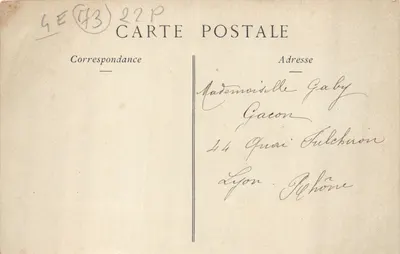 GE 173 22P
CARTE POSTALE
Correspondance
Adresse
Mademoiselle Gaby
Gacon
44 Quai Fulchiron
Lyon Rhône